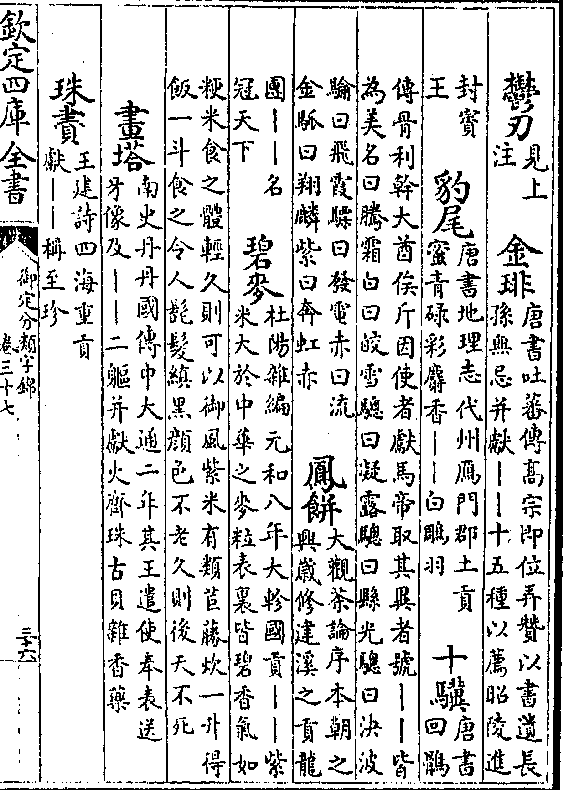 鬱刀
見上
注
金琲
唐書吐蕃傳髙宗即位弄贊以書遺長
孫無忌并獻丨丨十五種以薦昭陵進
封賓
王
豹尾
唐書地理志代州鴈門郡土貢
蜜青碌彩麝香丨丨白雕羽
十驥
唐書
回鶻
傳骨利幹大酋俟斤因使者獻馬帝取其異者號丨丨皆
為美名曰騰霜白曰皎雪驄曰凝露驄曰縣光驄曰決波
騟曰飛霞驃曰發電赤曰流
金䯄曰翔麟紫曰奔虹赤
鳳餅
大觀茶論序本朝之
興歲修建溪之貢龍
團丨丨名
冠天下
碧麥
杜陽雜編元和八年大軫國貢丨丨紫
米大於中華之麥粒表裏皆碧香氣如
粳米食之體輕久則可以御風紫米有類苣藤炊一升得
飯一斗食之令人髭髮縝黑顔色不老久則後天不死
畫塔
南史丹丹國傳中大通二年其王遣使奉表送
牙像及丨丨二軀并獻火齊珠古貝雜香藥
珠賮
王建詩四海重貢
獻丨丨稱至珍
欽定四庫全書
御定分類字錦
卷三十七
三十六